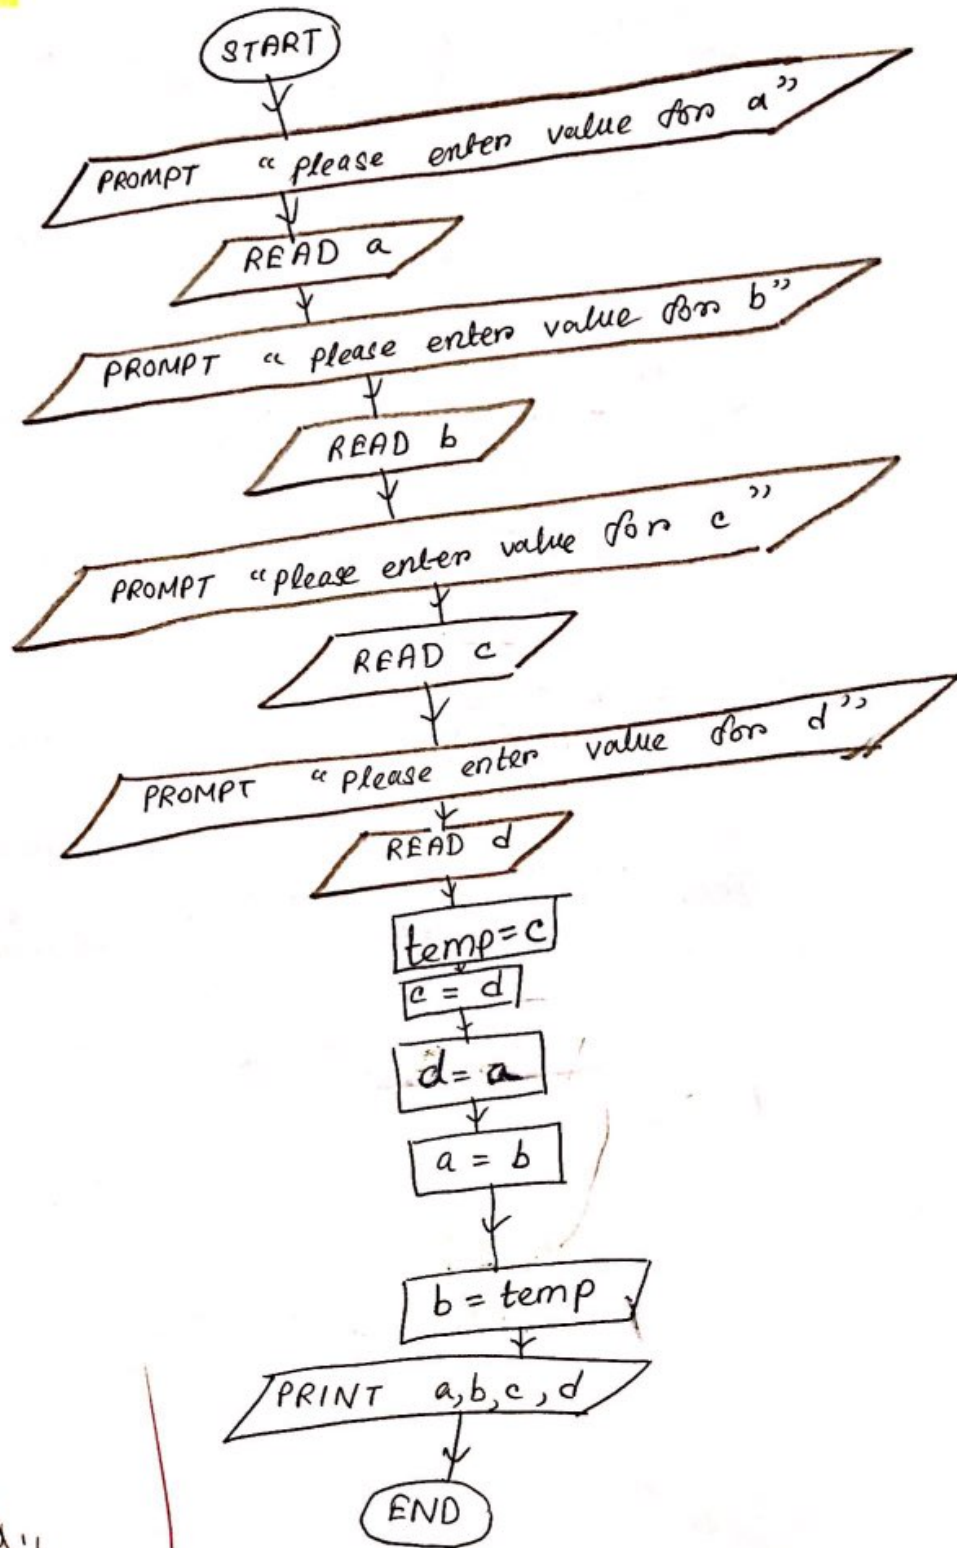 START
PROMPT “ please enter value for a”
READ a
PROMPT “ please enter value for b”
READ b
PROMPT “please enter value for c ”
READ c
PROMPT “please enter value for d”
READ d
temp=c
c = d
d= a
a = b
b = temp
PRINT a,b,c,d
END